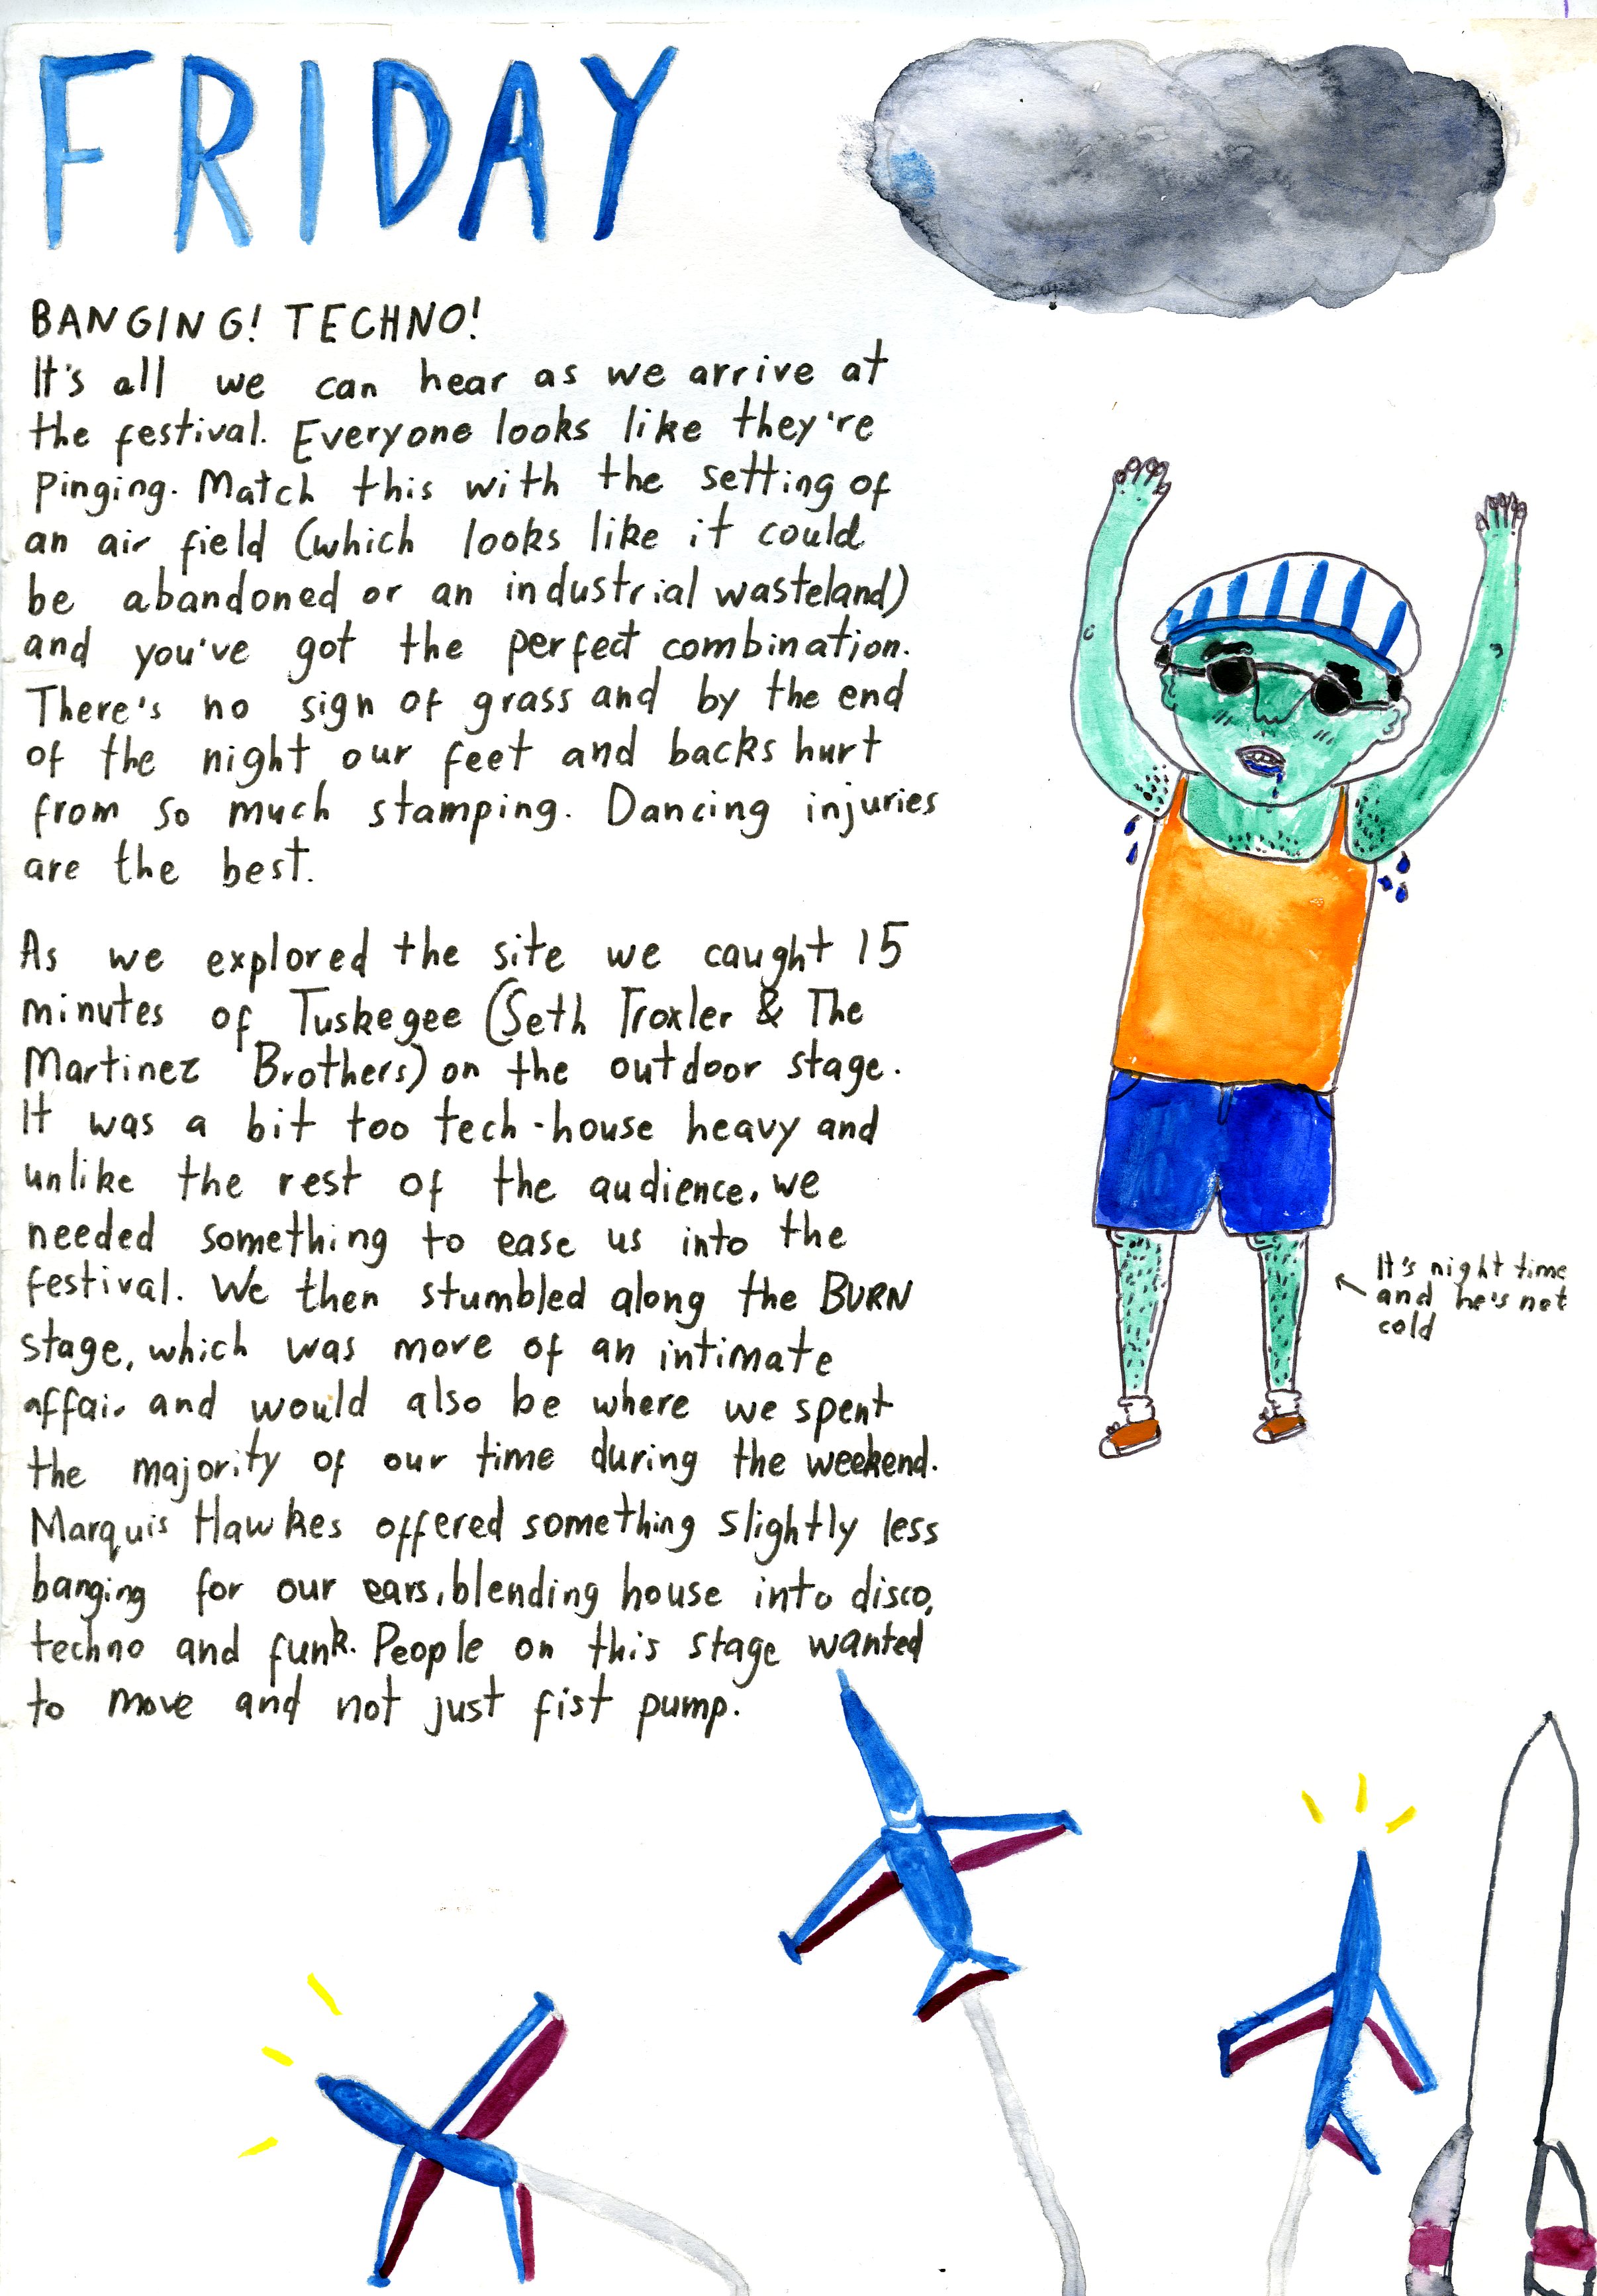 FRIDAY
BANGING! TECHNO!
It's all we can hear as we arrive at
the festival. Everyone looks like they're
pinging. Match this with the setting of
an air field (which looks like it could
be abandoned or an industrial wasteland)
and you've got the perfect combination.
There's no sign of grass and by the end
of the night our feet and backs hurt
from so much stamping. Dancing injuries
are the best.
As we explored the site we caught 15
minutes of Tuskegee (Seth Troxler & The
Martinez Brothers) on the outdoor stage.
It was a bit too tech-house heavy and
unlike the rest of the audience, we
needed something to ease us into the
festival. We then stumbled along the BURN
stage, which was more of an intimate
affair and would also be where we spent
the majority of our time during the weekend.
Marquis Hawkes offered something slightly less
banging for our ears, blending house into disco,
techno and funk. People on this stage wanted
to move and not just fist pump.
It's night time
and he's not
cold